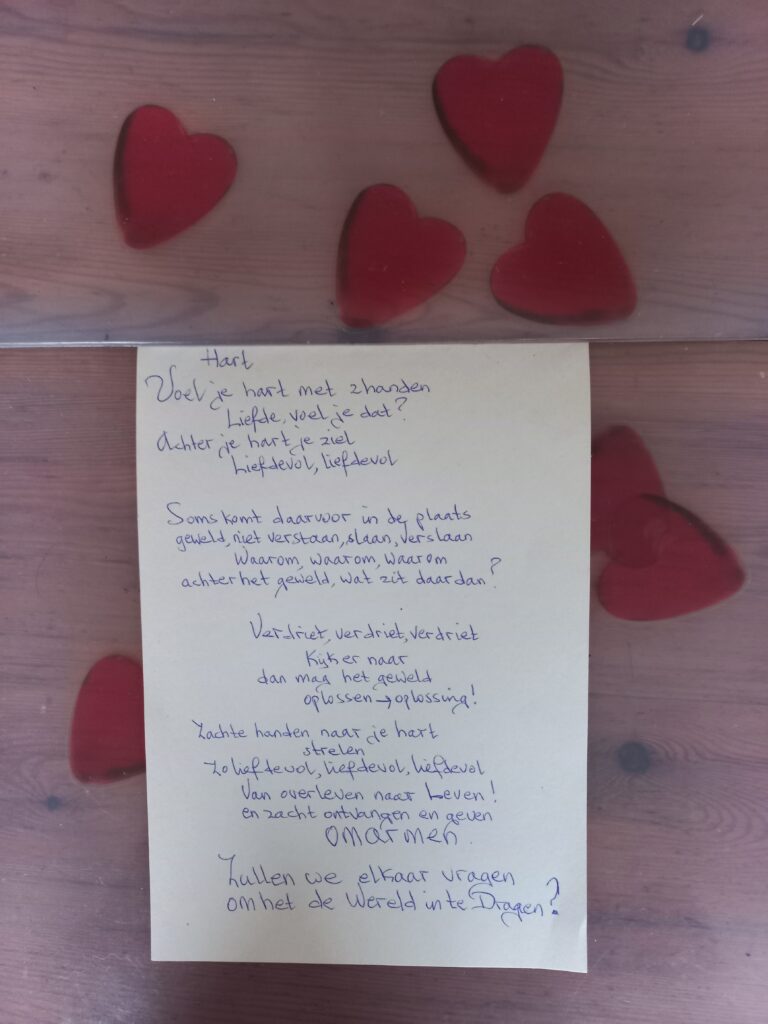 Hart
Voel je hart met 2 handen
Liefde, voel je dat?
Achter je hart je ziel
Liefdevol, liefdevol
Soms komt daarvoor in de plaats
geweld, niet verstaan, slaan, verslaan
Waarom, waarom, waarom
achter het geweld, wat zit daar dan?
Verdriet, verdriet, verdriet
Kijk er naar
dan mag het geweld
oplossen → oplossing!
Zachte handen naar je hart
strelen
Zo liefdevol, liefdevol, liefdevol
Van overleven naar Leven!
en zacht ontvangen en geven
omarmen.
Zullen we elkaar vragen
om het de Wereld in te Dragen?